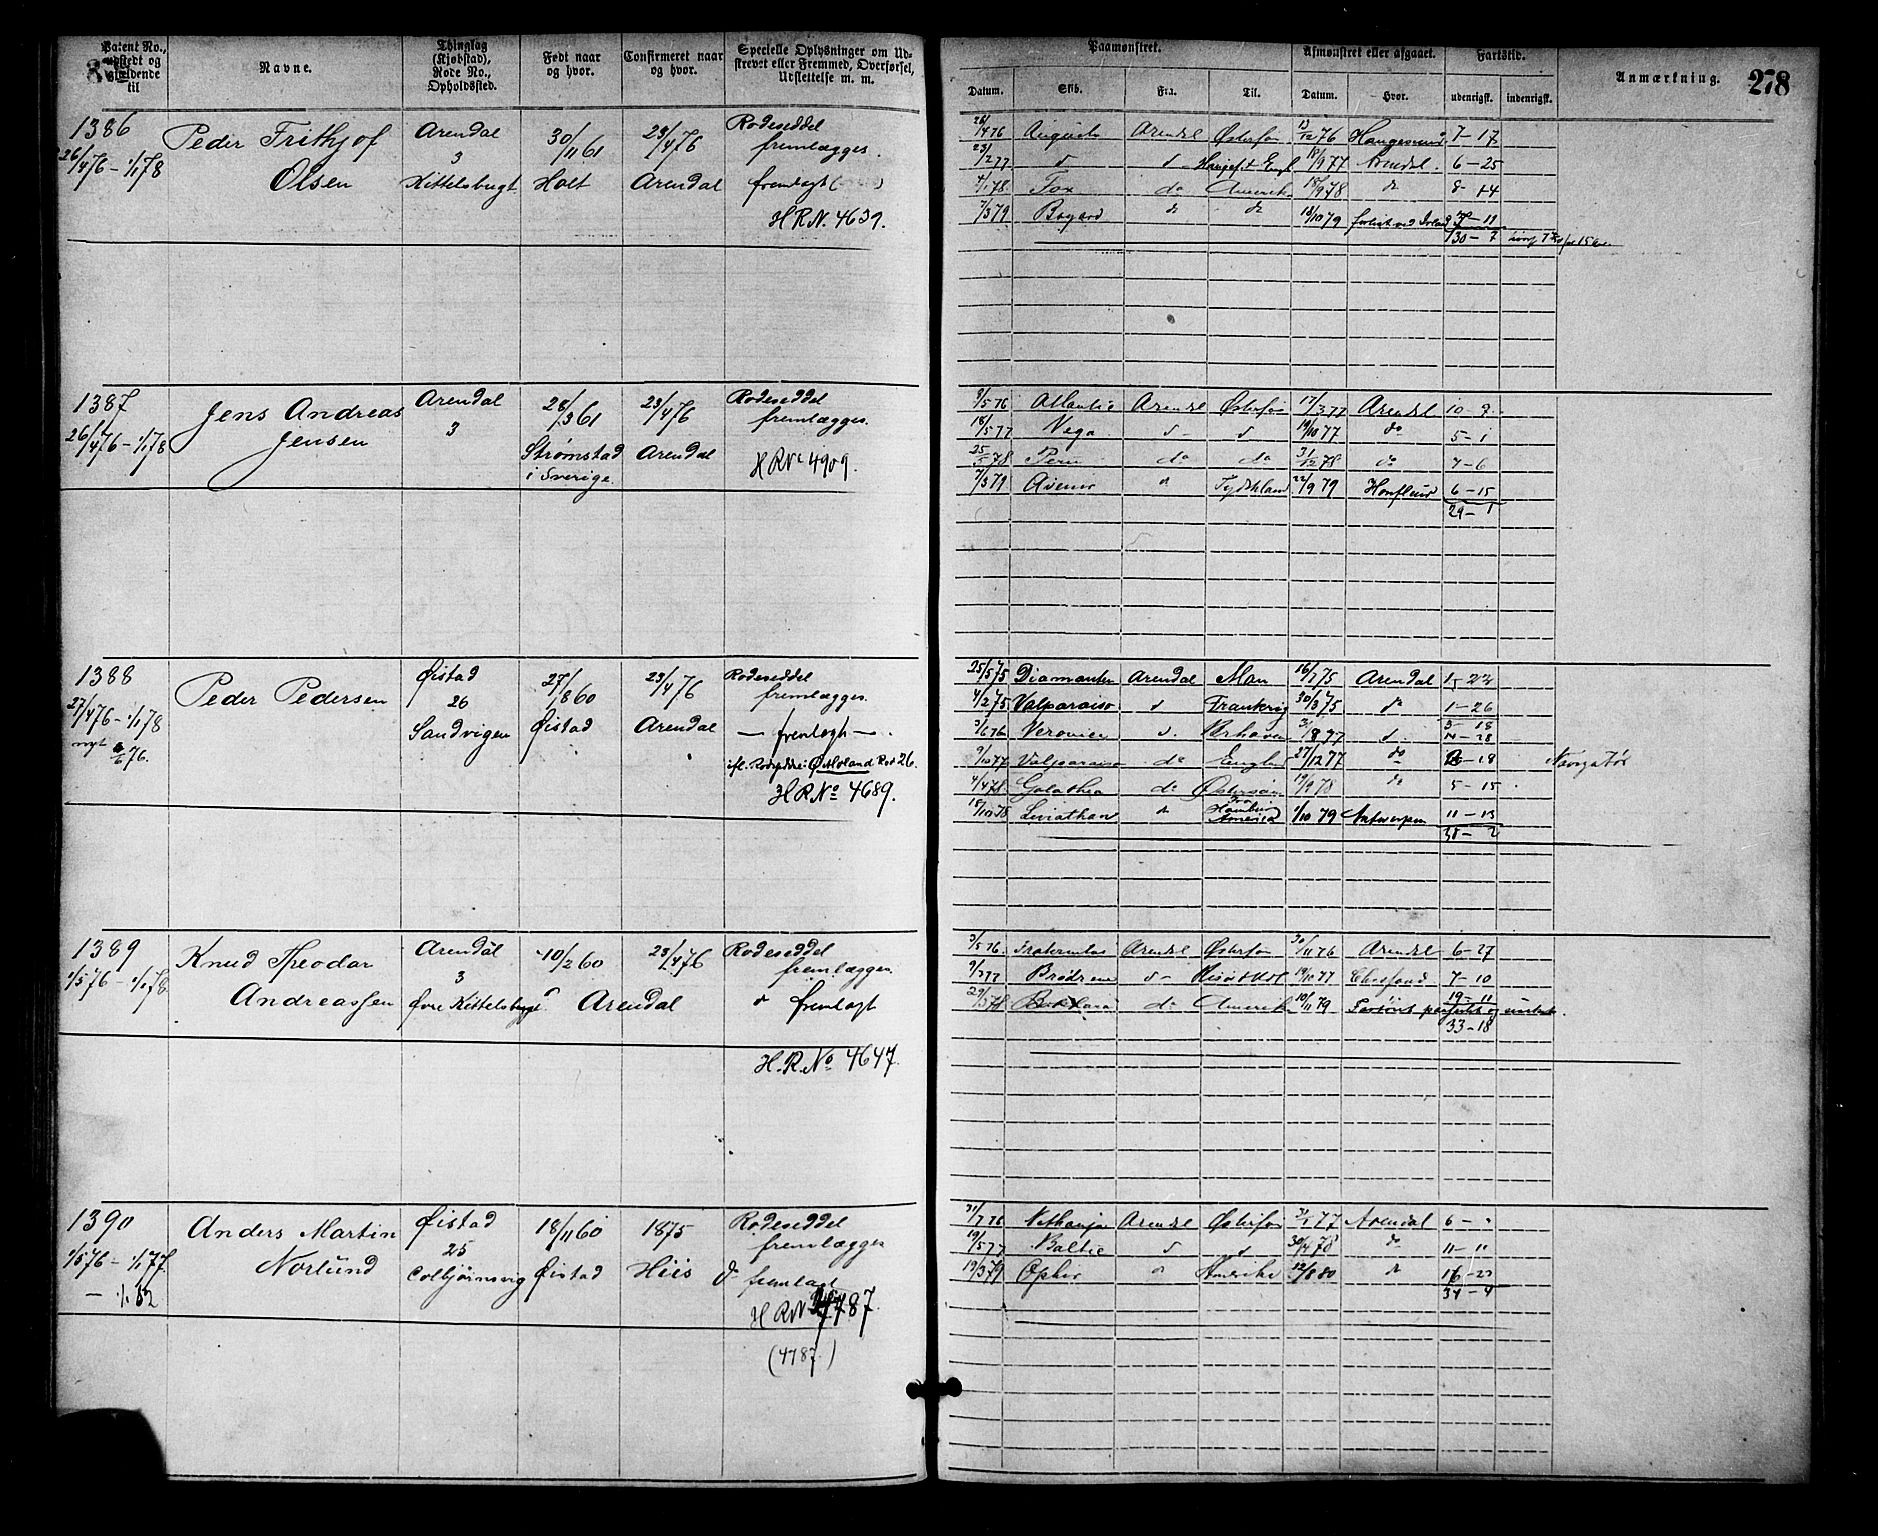 Patent No., udstedt og gjældende til
Navne.
Thinglag (Kjøbstad), Rode No., Opholdssted.
Født naar og hvor.
Confirmeret naar og hvor.
Specielle Oplysninger om Udskrevet eller Fremmed, Overførsel, Udslettelse m. m.
Paamønstret.
Datum.
Skib.
Fra.
Til.
Afmønstret eller afgaaet.
Datum.
Hvor.
Fartstid.
udenrigsk.
indenrigsk.
Anmærkning.
278
1386
26/4 76 - 1/1 78
Peder Frithjof
Olsen
Arendal
3
Kittelsbugt
30/11 61
Holt
23/4 76
Arendal
Rodeseddel
fremlægges.
fremlagt
H R N. 4639.
26/4 76 Augusta Arendl Østersøn 13/12 76 Haugesund 7-17
23/2 77 d d 18/9 77 Arendal. 6-25
4/1 78 Fox do Amerika 18/9 78 do 8-14
7/3 79 do do 18/10 79
30-7
1387
26/4 76 - 1/1 78
Jens Andreas
Jensen
Arendal
3
28/3 61
Strømstad
i Sverige
23/4 76
Arendal
Rodeseddel
fremlægges.
H R No 4909.
9/5 76 Atlantic Arendl Østersøn 17/3 77 Arendl 10-9
18/5 77 Vega d d 19/10 77 do 5-1
25/5 78 Peru do do 31/12 78 do 7-6
7/3 79 do Tydskland 22/9 79 Honfleur 6-15
29-1
1388
27/4 76 - 1/1 78
nyt 6/6 76.
Peder Pedersen
Øistad
26
Sandvigen
27/8 60
Øistad
23/4 76
Arendal
Rodeseddel
fremlægges.
- fremlagt -
ifl. Rodeseddel: Ø Moland Rod 26.
H R No 4689.
25/5 75 Diamanten Arendal Man 16/7 75 Arendal 1-22
4/2 75 Valparaiso d Frankrig 30/3 75 do 1-26
3-18
3/6 76 d. 3/8 77 d. 14-28
9/10 77 Valparaiso do Engld 27/12 77 do 2-18
Navigatør
4/4 78 Galathea do Østersøn 19/9 78 do 5-15
15/10 78 Liviathan do Hamburg
America 1/10 79 Antwerpen 11-13
38-2
1389
1/5 76 - 1/1 78
Knud Theodor
Andreassen
Arendal
3
Øvre Kittelsbugt
10/2 60
Arendal
23/4 76
Rodeseddel
fremlægges.
d fremlagt
H. R. No 4647.
3/5 76. Fraternitas Arendl Østersøn 30/11 76 Arendl 6-27
9/3 77 Brødrene d 19/10 77 7-10
29/3 78 do Amerika 10/11 79 19-11
33-18
1390
1/5 76 - 1/1 77.
- 1/1 82
Anders Martin
Norlund
Øistad
25
Colbjørnsvig
18/11 60
Øistad
1875
Hiis
Rodeseddel
fremlægges
d fremlagt
H R N 4787.
(4787.)
31/7 76 Nathanja Arendl Østersøn 31/1 77 Arendal 6-
19/5 77 Baltic d d 30/4 78 do 11-11
19/3 79 Ophir do Amerika 12/8 80 do 16-23
34-4